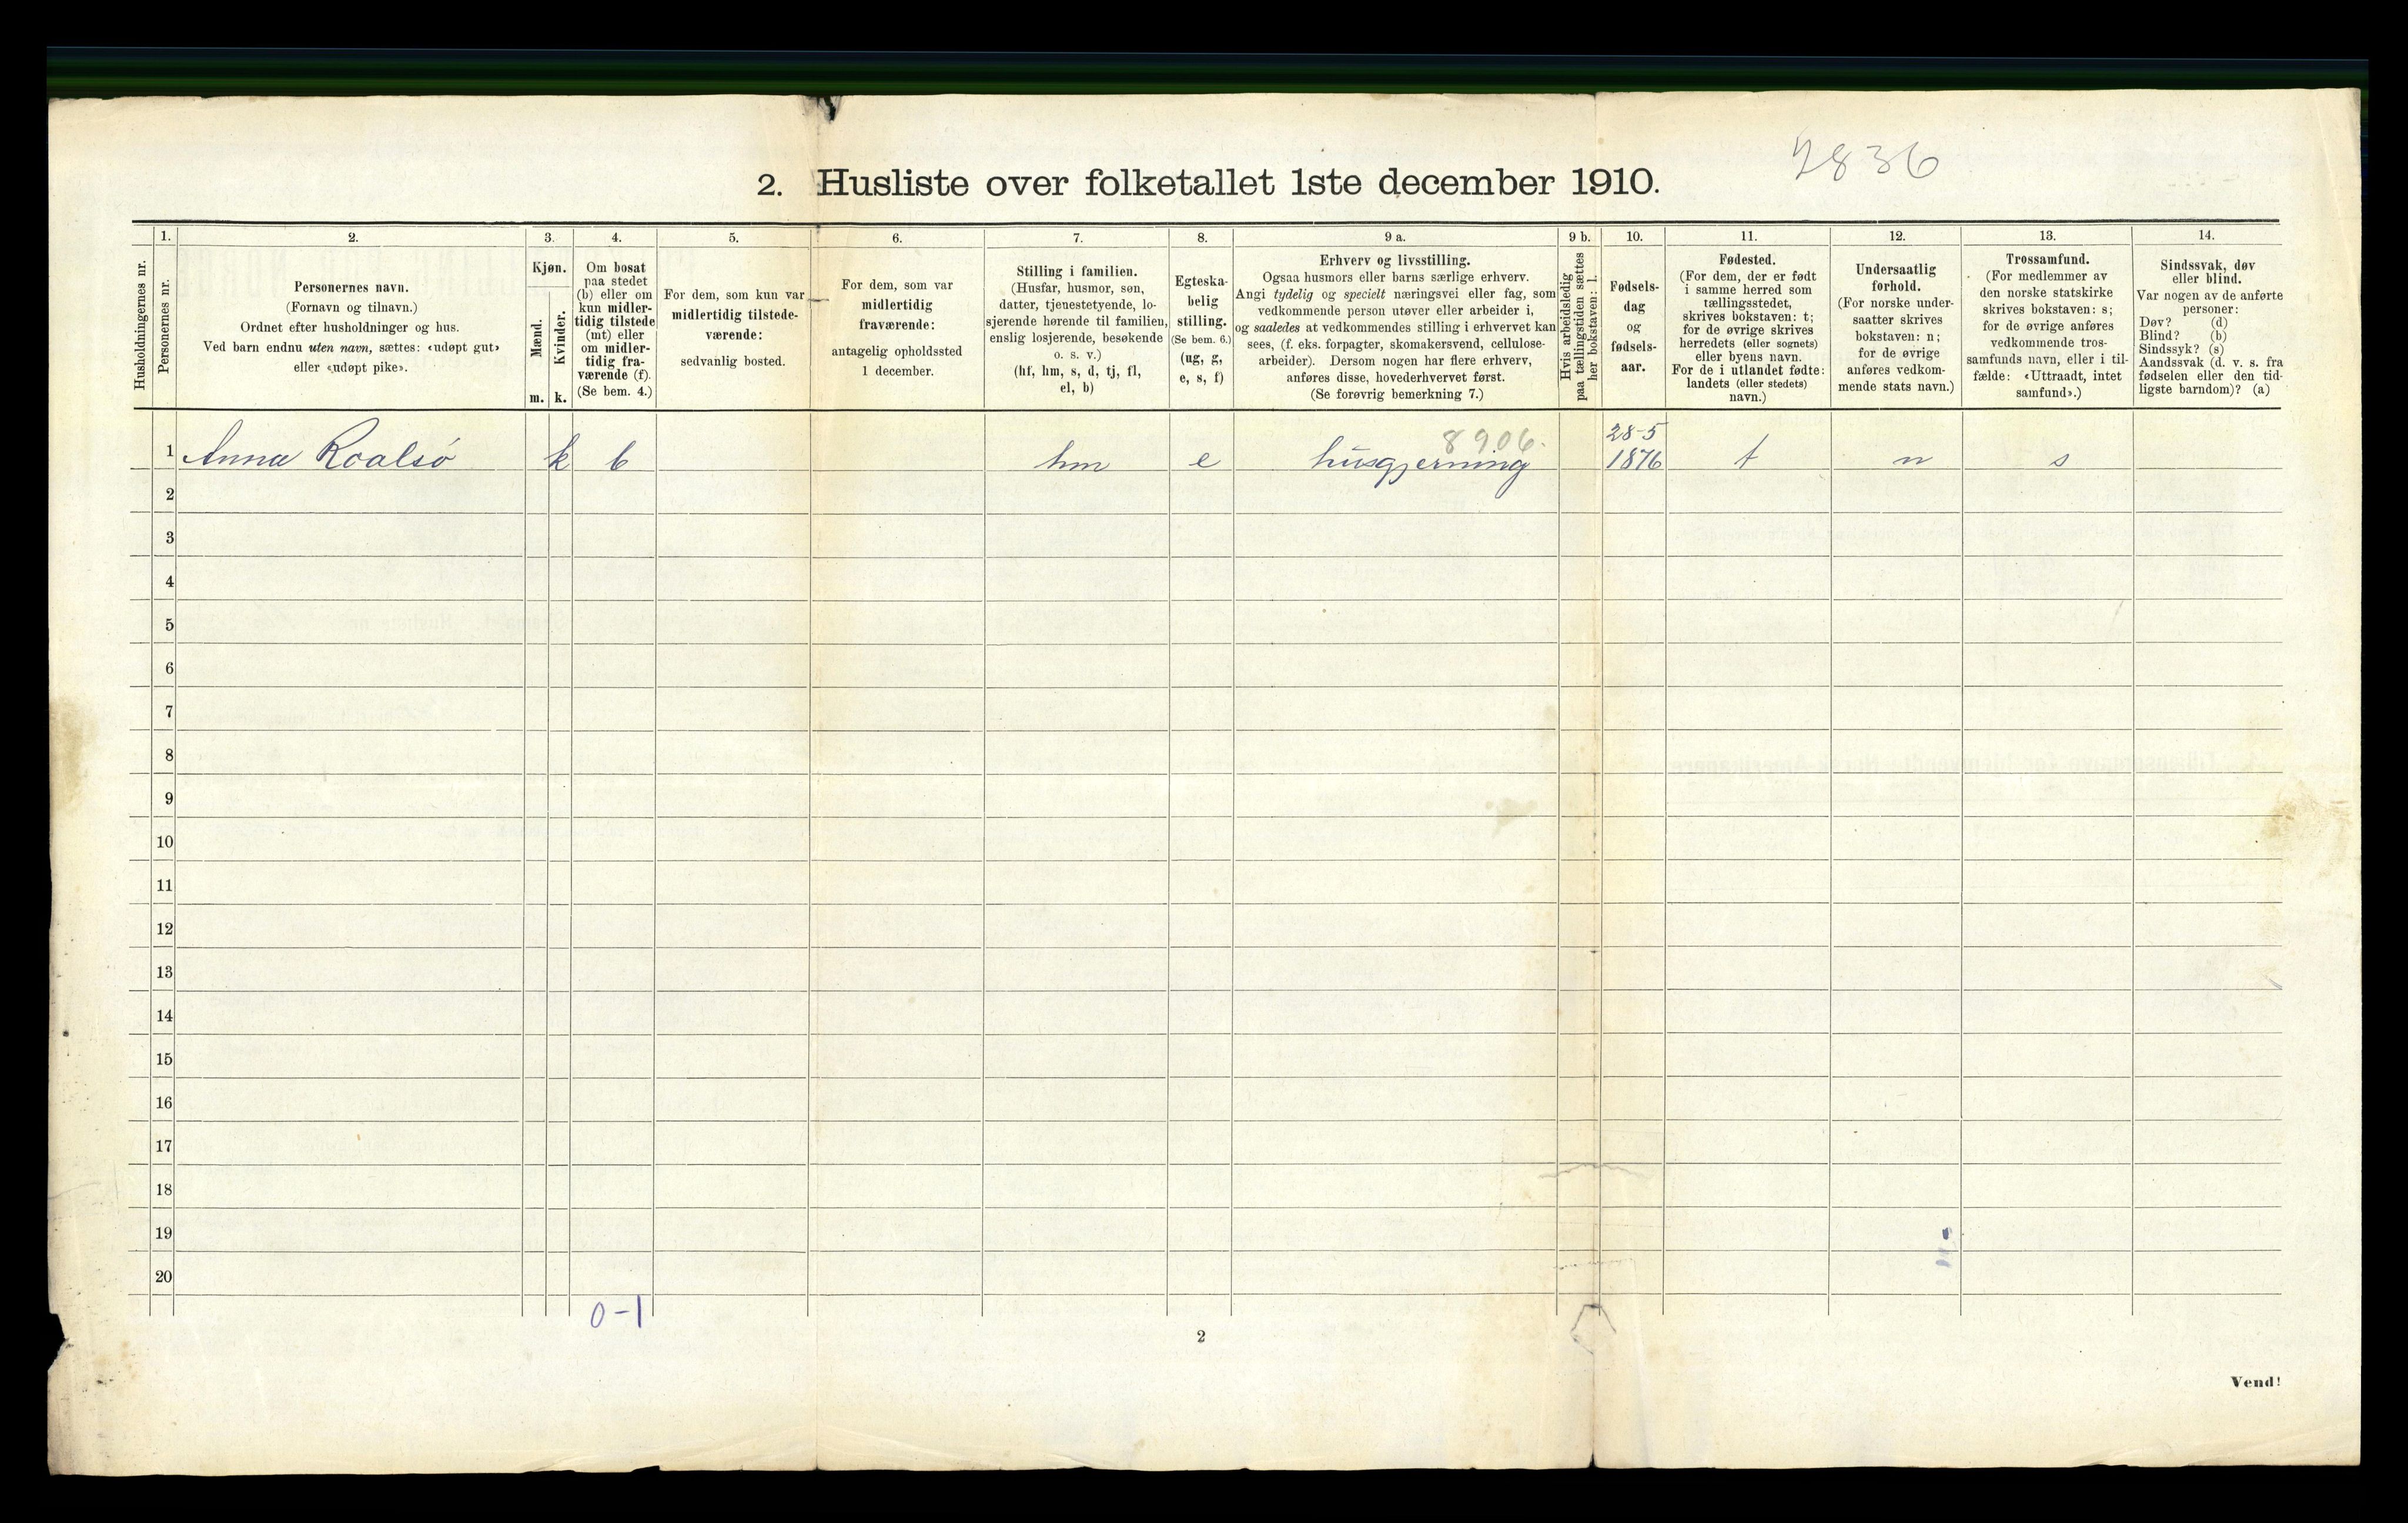 2836
2. Husliste over folketallet 1ste december 1910.
Husholdningernes nr.
1.
Personernes nr.
2.
Personernes navn.
(Fornavn og tilnavn.)
Ordnet efter husholdninger og hus.
Ved barn endnu uten navn, sættes: «udøpt gut»
eller «udøpt pike».
3.
Kjøn.
Mænd.
Kvinder.
m.
k.
4.
Om bosat
paa stedet
(b) eller om
kun midler-
tidig tilstede
(mt) eller
om midler-
tidig fra-
værende (f).
(Se bem. 4.)
5.
For dem, som kun var
midlertidig tilstede-
værende:
sedvanlig bosted.
6.
For dem, som var
midlertidig
fraværende:
antagelig opholdssted
1 december.
7.
Stilling i familien.
(Husfar, husmor, søn,
datter, tjenestetyende, lo-
sjerende hørende til familien,
enslig losjerende, besøkende
o. s. v.)
(hf, hm, s, d, tj, fl,
el, b)
8.
Egteska-
belig
stilling.
(Se bem. 6.)
(ug, g,
e, s, f)
9 a.
Erhverv og livsstilling.
Ogsaa husmors eller barns særlige erhverv.
Angi tydelig og specielt næringsvei eller fag, som
vedkommende person utøver eller arbeider i,
og saaledes at vedkommendes stilling i erhvervet kan
sees, (f. eks. forpagter, skomakersvend, cellulose-
arbeider). Dersom nogen har flere erhverv,
anføres disse, hovederhvervet først.
(Se forøvrig bemerkning 7.)
9 b.
Hvis arbeidsledig
paa tællingstiden sættes
her bokstaven: l.
10.
Fødsels-
dag
og
fødsels-
aar.
11.
Fødested.
(For dem, der er født
i samme herred som
tællingsstedet,
skrives bokstaven: t;
for de øvrige skrives
herredets (eller sognets)
eller byens navn.
For de i utlandet fødte:
landets (eller stedets)
navn.)
12.
Undersaatlig
forhold.
(For norske under-
saatter skrives
bokstaven: n;
for de øvrige
anføres vedkom-
mende stats navn.)
13.
Trossamfund.
(For medlemmer av
den norske statskirke
skrives bokstaven: s;
for de øvrige anføres
vedkommende tros-
samfunds navn, eller i til-
fælde: «Uttraadt, intet
samfund».)
14.
Sindssvak, døv
eller blind.
Var nogen av de anførte
personer:
Døv? (d)
Blind? (b)
Sindssyk? (s)
Aandssvak (d. v. s. fra
fødselen eller den tid-
ligste barndom)? (a)
8906. 28-5
1 Anna Roalsø k b hm e husgjerning 1876 t n s
2
3
4
5
6
7
8
9
10
11
12
13
14
15
16
17
18
19
20
0-1
2
Vend!